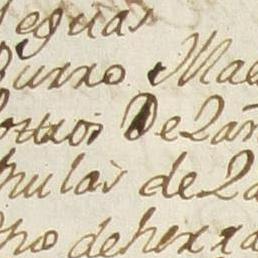 leguas
Burro Mae
Potros De 2 añ
Mulas de 2 a
cho de herra